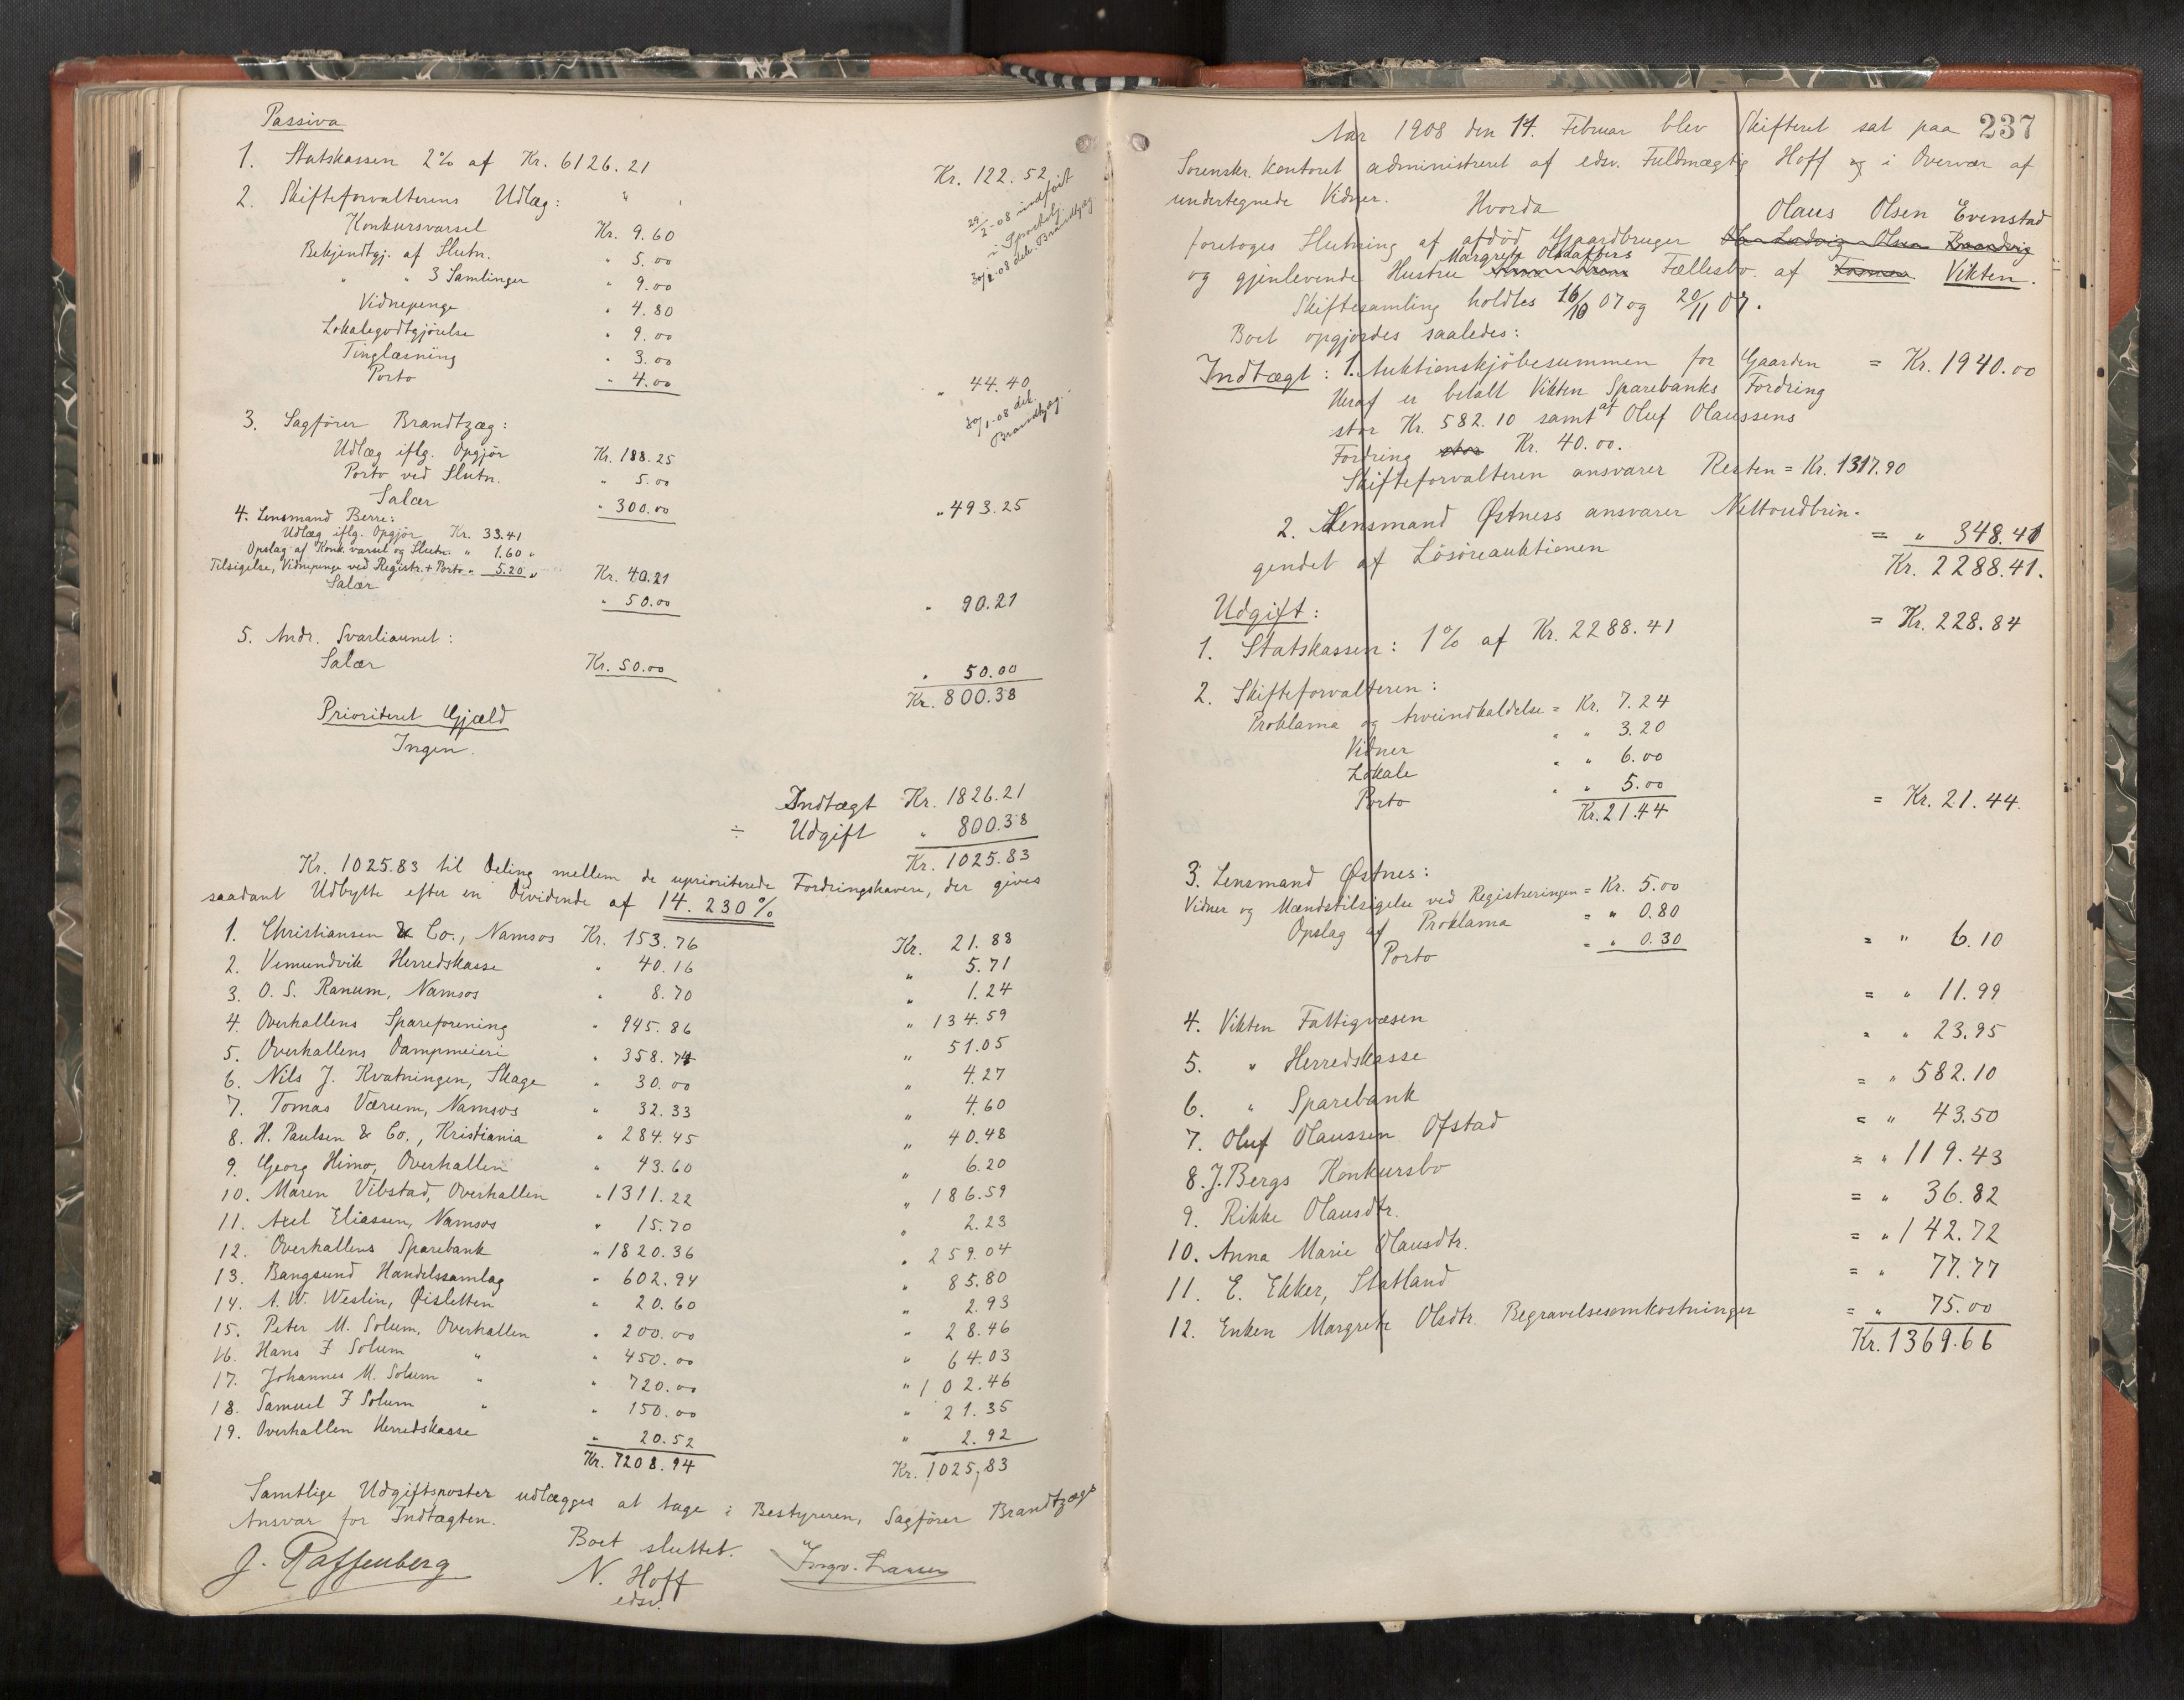 Passiva
1. Statskassen 2% af Kr. 6126.21 Kr. 122.52
2. Skifteforvalterens Udlæg:
Konkursvarsel Kr. 9.60
Bekjendtgj. af Slutn. " 5.00
" " 3 Samlinger " 9.00
Vidnepenge " 4.80
Lokalegodtgjørelse " 9.00
Tinglæsning " 3.00
Porto " 4.00 " 44.40
29/2-08 indført
i Sportelj.
30/1-08 dek. Brandtzæg
3. Sagfører Brandtzæg:
Udlæg iflg. Opgjør Kr. 188.25
Porto ved Slutn. " 5.00
Salær " 300.00 " 493.25
30/1-08 dek.
Brandtzæg.
4. Lensmand Berre:
Udlæg iflg. Opgjør Kr. 33.41
Opslag af Konk.varsel og Slutn. " 1.60 "
Tilsigelse, Vidnepenge ved Registr. + Porto " 5.20 " Kr. 40.21
Salær " 50.00 " 90.21
5. Andr. Svarliaunet:
Salær Kr. 50.00 " 50.00
Kr. 800.38
Prioriteret Gjæld
Ingen.
Indtægt Kr. 1826.21
÷ Udgift " 800.38
Kr. 1025.83
Kr. 1025.83 til Deling mellem de uprioriterede Fordringshavere, der gives
saadant Udbytte efter en Dividende af 14.230%
1. Christiansen & Co., Namsos Kr. 153.76 Kr. 21.88
2. Vemundvik Herredskasse " 40.16 " 5.71
3. O. S. Ranum, Namsos " 8.70 " 1.24
4. Overhallens Spareforening " 945.86 " 134.59
5. Overhallens Dampmeieri " 358.74 " 51.05
6. Nils J. Kvatningen, Skage " 30.00 " 4.27
7. Tomas Værum, Namsos " 32.33 " 4.60
8. H. Paulsen & Co., Kristiania " 284.45 " 40.48
9. Georg Himo, Overhallen " 43.60 " 6.20
10. Maren Vibstad, Overhallen " 1311.22 " 186.59
11. Axel Eliassen, Namsos " 15.70 " 2.23
12. Overhallens Sparebank " 1820.36 " 259.04
13. Bangsund Handelssamlag " 602.94 " 85.80
14. A. W. Weslin, Øisletten " 20.60 " 2.93
15. Peter M. Solum, Overhallen " 200.00 " 28.46
16. Hans F Solum " " 450.00 " 64.03
17. Johannes M. Solum " " 720.00 " 102.46
18. Samuel F Solum " " 150.00 " 21.35
19. Overhallen Herredskasse " 20.52 " 2.92
Kr. 7208.94 Kr. 1025,83
Samtlige Udgiftsposter udlægges at tage i Bestyreren, Sagfører Brandtzægs
Ansvar for Indtægten.
Boet sluttet.
J. Raffenberg N. Hoff Ingv. Larsen
edsv.
237
Aar 1908 den 14. Februar blev Skifteret sat paa
Sorenskr. kontoret administreret af edsv. Fuldmægtig Hoff og i Overvær af
undertegnede Vidner. Hvorda Olaus Olsen Evenstad
foretoges Slutning af afdød Gaardbruger Ole Ludvig Olsen Baandvig
Margrete Olsdatters
og gjenlevende Hustru Fællesbo af Fosnes Vikten.
Skiftesamling holdtes 16/10 07 og 20/11 07.
Boet opgjordes saaledes:
Indtægt: 1. Auktionskjøbesummen for Gaarden = Kr. 1940.00
Heraf er betalt Vikten Sparebanks Fordring
stor Kr. 582.10 samt af Oluf Olaussens
Fordring stor Kr. 40.00.
Skifteforvalteren ansvarer Resten = Kr. 1317.90
2. Lensmand Østness ansvarer Nettoudbrin-
gendet af Lösöreauktionen = " 348.41
Kr. 2288.41.
Udgift:
1. Statskassen: 1% af Kr. 2288.41 = Kr. 228.84
2. Skifteforvalteren:
Proklama og Arveindkaldelse = Kr. 7.24
Vidner " " 3.20
Lokale " " 6.00
Porto " " 5.00
Kr. 21.44 = Kr. 21.44
3. Lensmand Østnes:
Vidner og Mændstilsigelse ved Registreringen = Kr. 5.00
Opslag af Proklama = " 0.80
Porto = " 0.30 = " 6.10
4. Vikten Fattigvæsen = " 11.99
5. " Herredskasse " " 23.95
6. " Sparebank = " 582.10
7. Oluf Olaussen Ofstad = " 43.50
8. J. Bergs Konkursbo = " 119.43
9. Rikke Olausdtr. = " 36.82
10. Anna Marie Olausdtr. = " 142.72
11. E. Ekker, Statland = " 77.77
12. Enken Margrete Olsdtr. Begravelsesomkostninger = " 75.00
Kr. 1369.66